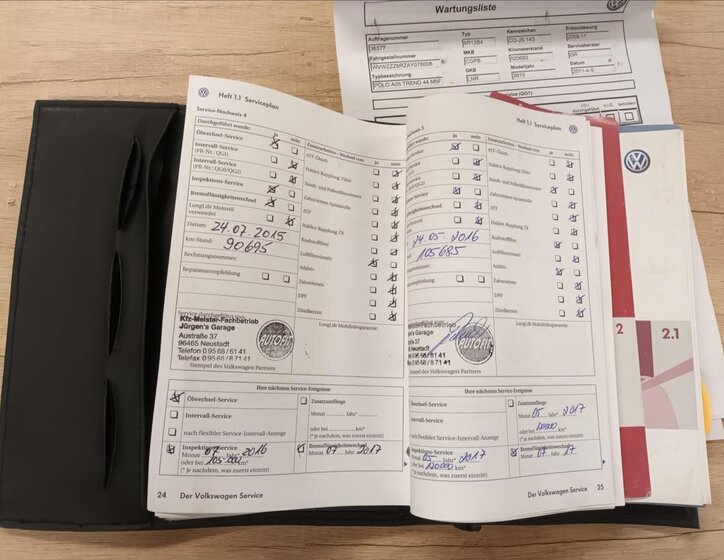 Wartungsliste
Auftragsnummer
38377
Typ
6R12B4
Kennzeichen
CO-JS 143
Erstzulassung
2009-11
Fahrgestellnummer
MKB
CGPB
Kilometerstand
020893
Serviceberater
GR
Typbezeichnung
POLO A05 TREND 44 M5F
GKB
LNR
Modelljahr
2010
Datum
2011-4-5
Heft 1.1 Serviceplan
Service-Nachweis 4
Durchgeführt wurde: ja nein
Zusatzarbeiten - Wechsel von: ja nein
Ölwechsel-Service
Intervall-Service
(PR-Nr.: QG1)
Intervall-Service
(PR-Nr.: QG0/QG2)
Inspektions-Service
Bremsflüssigkeitswechsel
LongLife Motoröl
verwendet
Datum: 24.07.2015
km-Stand: 90695
Rechnungsnummer:
Reparaturempfehlung
ATF-Ölsieb
Haldex-Kupplung: Filter
Staub- und Pollenfiltereinsatz
Zahnriemen-Spannrolle
ATF
Haldex-Kupplung: Öl
Kraftstofffilter
Luftfiltereinsatz
Additiv
Zahnriemen
DPF
Zündkerzen
Service durchgeführt von:
LongLife Mobilitätsgarantie:
Kfz-Meister-Fachbetrieb
Jürgen's Garage
Austraße 37
96465 Neustadt
Telefon 0 95 68 / 61 41
Telefax 0 95 68 / 8 71 41
AUTOFIT
Stempel des Volkswagen Partners
Ihre nächsten Service-Ereignisse
Ölwechsel-Service
Intervall-Service
nach flexibler Service-Intervall-Anzeige
Zusatzumfänge
Monat Jahr*
oder bei km*
(* je nachdem, was zuerst eintritt)
Inspektions-Service
Monat 07 Jahr* 2016
oder bei 105.000 km*
(* je nachdem, was zuerst eintritt)
Bremsflüssigkeitswechsel
Monat 07 2017
24 Der Volkswagen Service
Heft 1.1 Serviceplan
Zusatzarbeiten - Wechsel von: ja nein
ATF-Ölsieb
Haldex-Kupplung: Filter
Staub- und Pollenfiltereinsatz
Zahnriemen-Spannrolle
ATF
Haldex-Kupplung: Öl
Kraftstofffilter
Luftfiltereinsatz
Additiv
Zahnriemen
DPF
Zündkerzen
24.05.2016
105685
LongLife Mobilitätsgarantie:
AUTOFIT
Stempel des Volkswagen Partners
Ihre nächsten Service-Ereignisse
Ölwechsel-Service
Intervall-Service
nach flexibler Service-Intervall-Anzeige
Zusatzumfänge
Monat 05 Jahr* 2017
oder bei 120000 km*
(* je nachdem, was zuerst eintritt)
Inspektions-Service
05 Jahr* 2017
oder bei 120000 km*
(* je nachdem, was zuerst eintritt)
Bremsflüssigkeitswechsel
Monat 07 17
Der Volkswagen Service 25
2
2.1